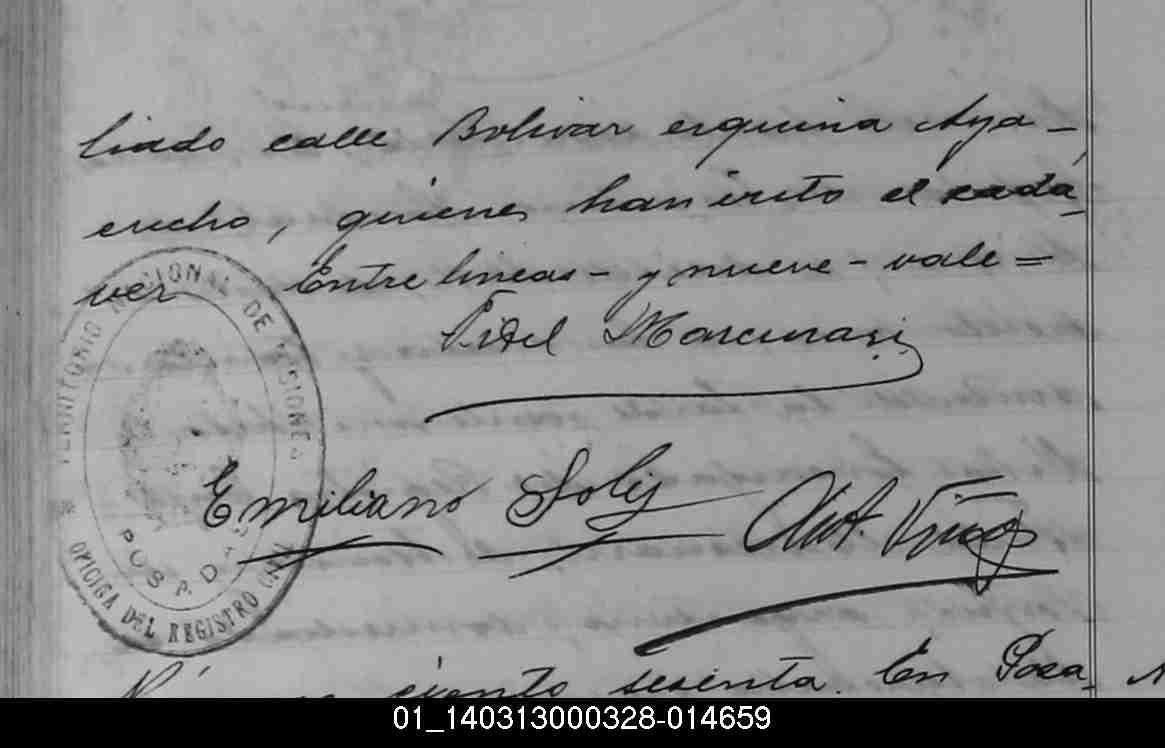 liado calle Bolivar esquina Aya-
cucho, quienes han visto el cadá-
ver Entre lineas - y nueve - vale =
Fidel
Emiliano Solis
Ant.
TERRITORIO NACIONAL DE MISIONES
POSADAS
OFICINA DEL REGISTRO CIVIL
ciento sesenta. En Posa-
01_140313000328-014659